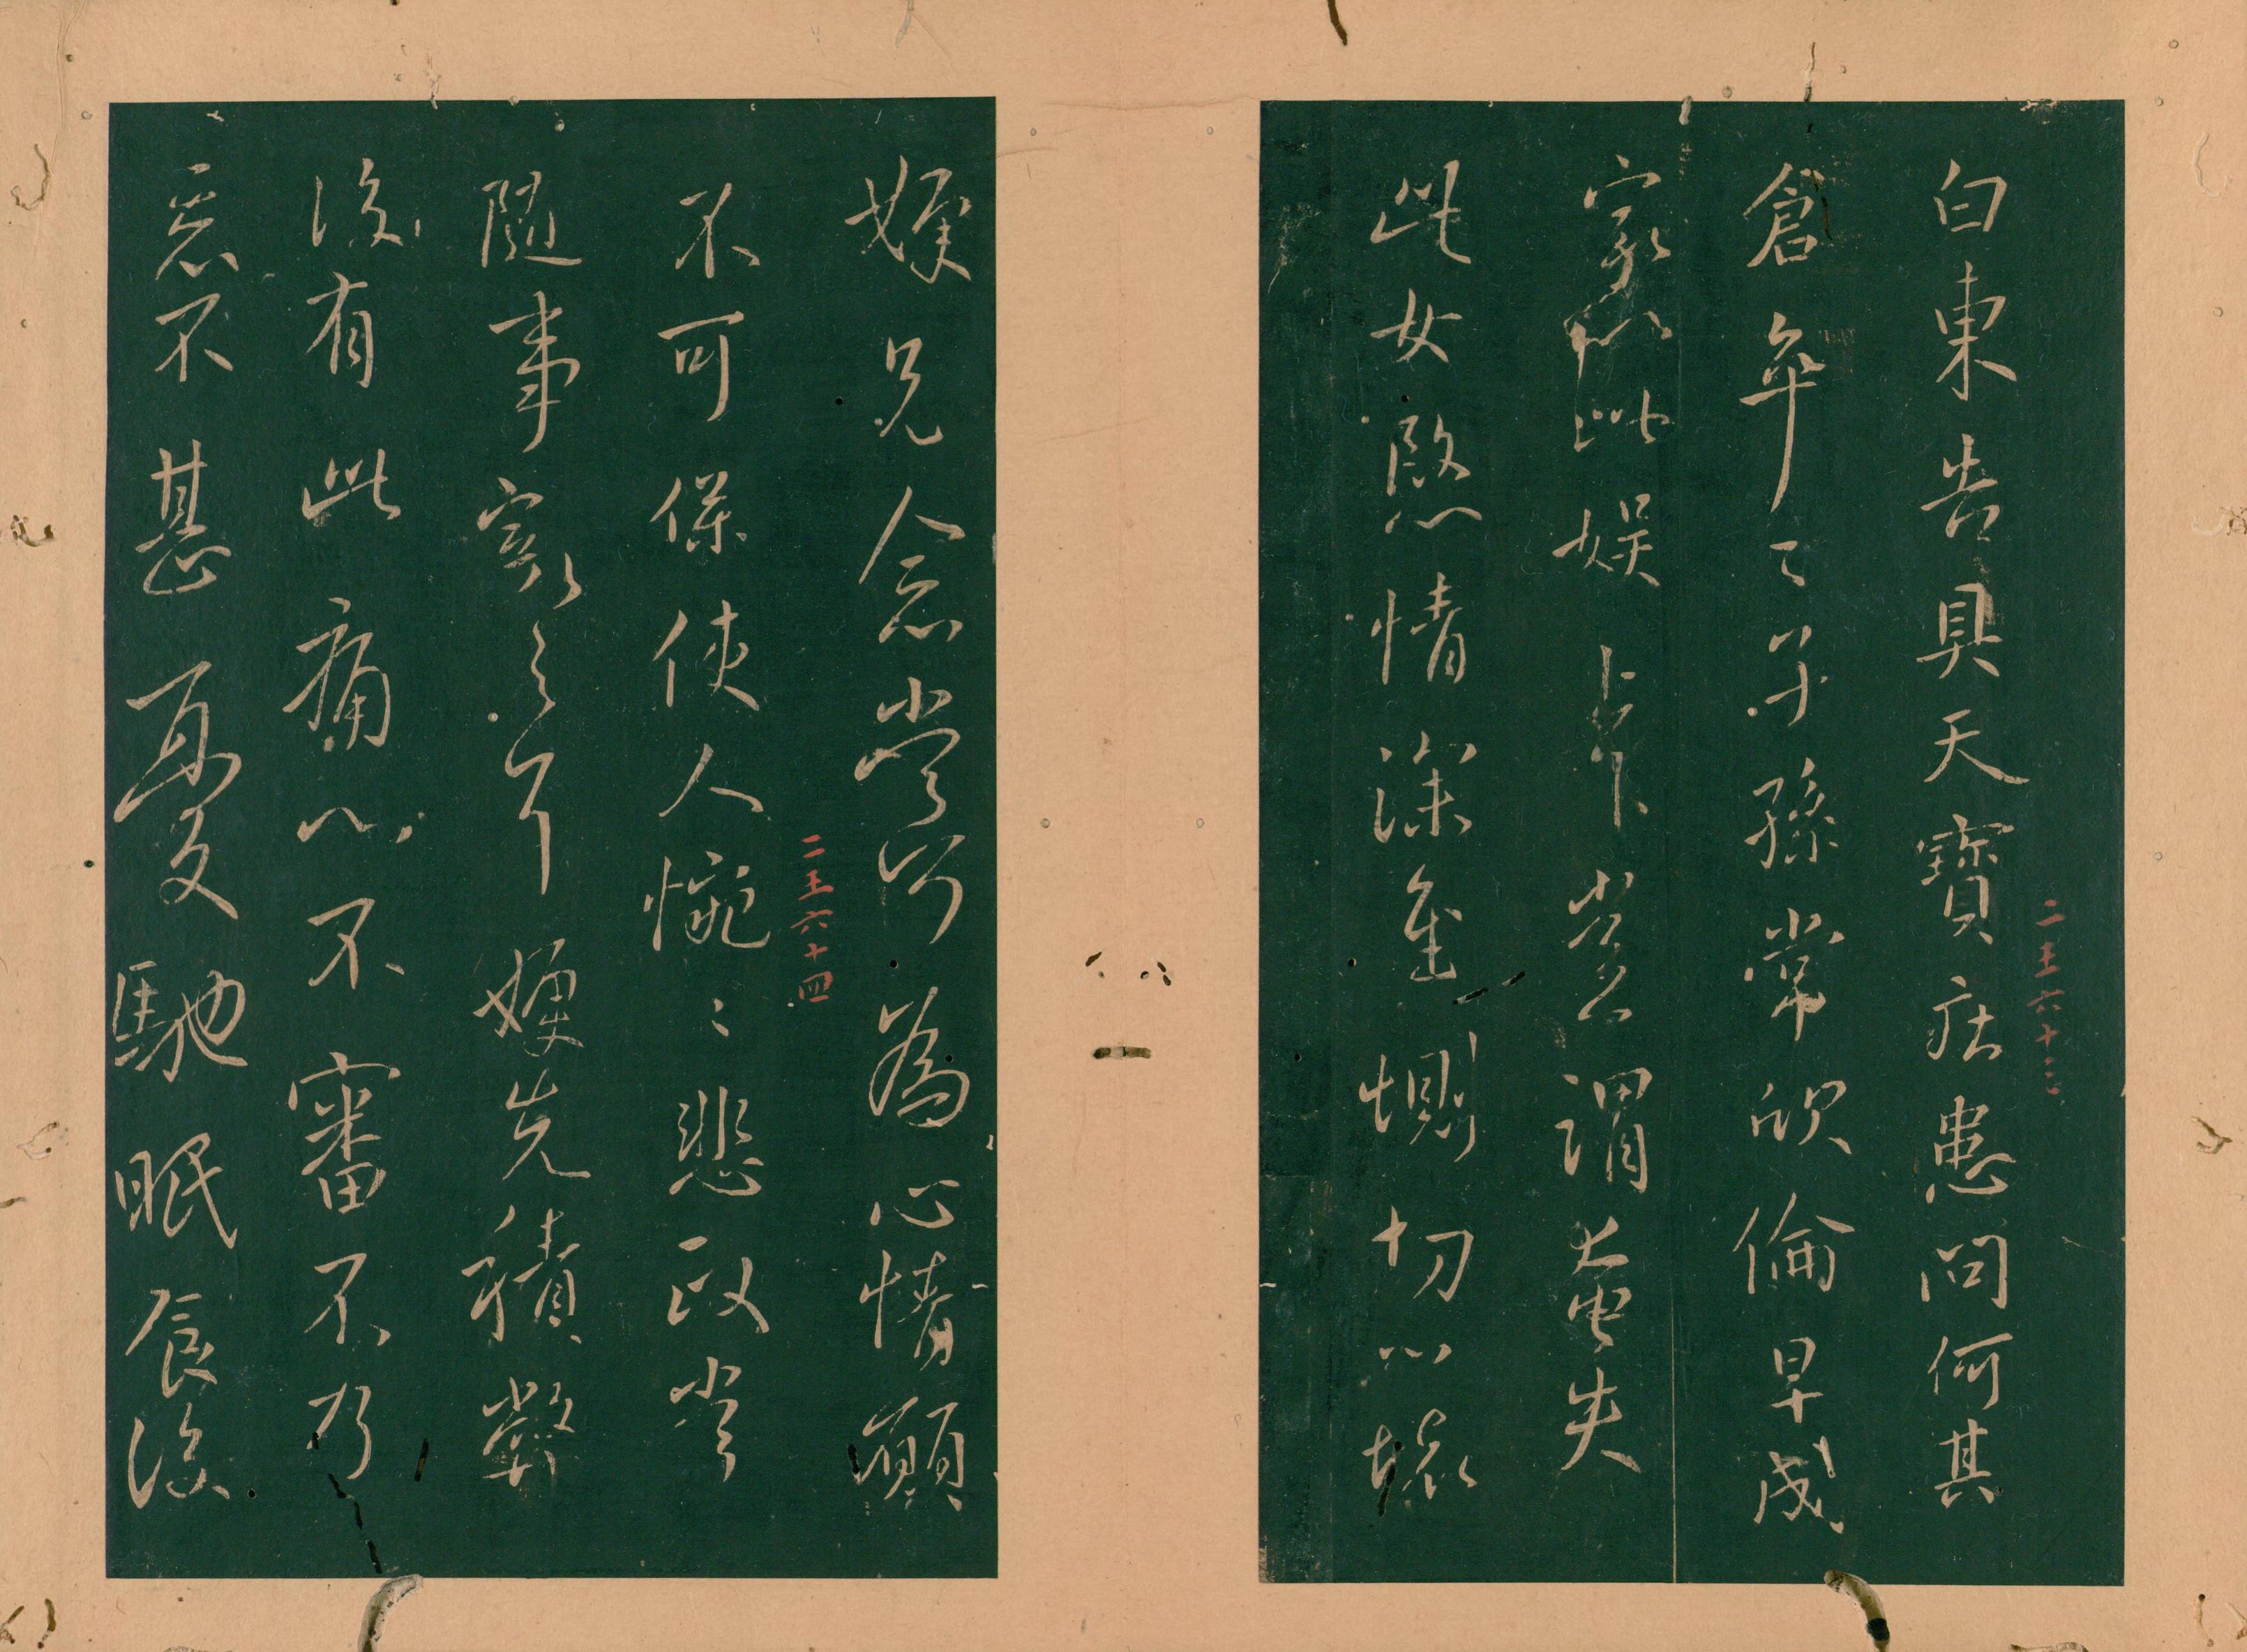 二王六十三
白東告具天寶疾患問何其
倉卒乙子孫常欣倫早成
家以此娛上下豈謂奄失
此女愍惜深至惻切心懷
嫂兄念當何為心情願
二王六十四
不可保使人惋〻悲政當
隨事豁之耳嫂先積弊
復有此痛心不審不乃
惡不甚憂馳眠食復